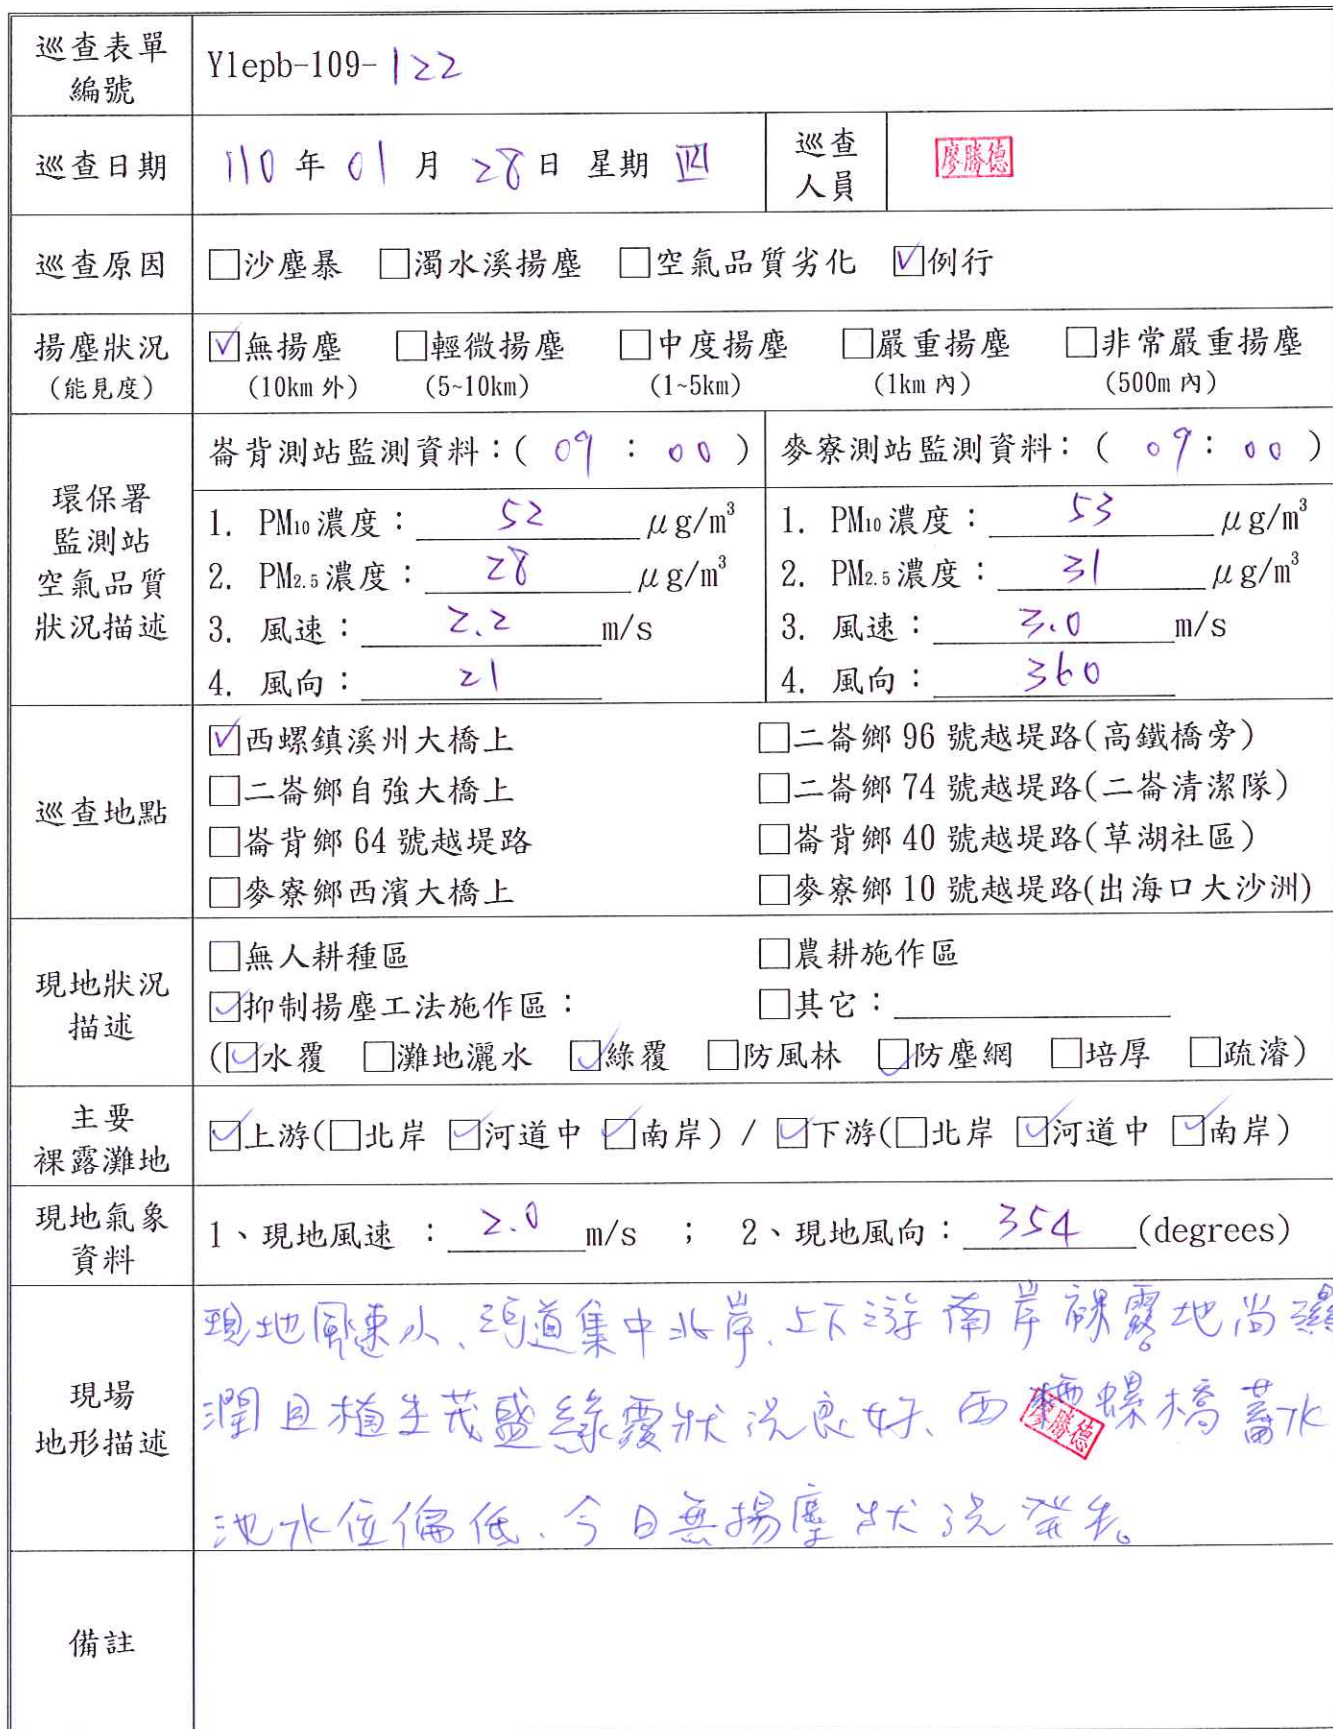 巡查表單
編號
Ylepb-109-122
巡查日期
110 年 01 月 28 日 星期 四
巡查
人員
廖勝德
巡查原因
□沙塵暴 □濁水溪揚塵 □空氣品質劣化 ☑例行
揚塵狀況
(能見度)
☑無揚塵 □輕微揚塵 □中度揚塵 □嚴重揚塵 □非常嚴重揚塵
(10km 外) (5~10km) (1~5km) (1km 內) (500m 內)
環保署
監測站
空氣品質
狀況描述
崙背測站監測資料：( 09 : 00 )
1. PM₁₀濃度： 52 μg/m³
2. PM₂.₅濃度： 28 μg/m³
3. 風速： 2.2 m/s
4. 風向： 21
麥寮測站監測資料： ( 09 : 00 )
1. PM₁₀濃度： 53 μg/m³
2. PM₂.₅濃度： 31 μg/m³
3. 風速： 3.0 m/s
4. 風向： 360
巡查地點
☑西螺鎮溪州大橋上 □二崙鄉 96 號越堤路(高鐵橋旁)
□二崙鄉自強大橋上 □二崙鄉 74 號越堤路(二崙清潔隊)
□崙背鄉 64 號越堤路 □崙背鄉 40 號越堤路(草湖社區)
□麥寮鄉西濱大橋上 □麥寮鄉 10 號越堤路(出海口大沙洲)
現地狀況
描述
□無人耕種區 □農耕施作區
☑抑制揚塵工法施作區： □其它：
(☑水覆 □灘地灑水 ☑綠覆 □防風林 ☑防塵網 □培厚 □疏濬)
主要
裸露灘地
☑上游(□北岸 ☑河道中 ☑南岸) / ☑下游(□北岸 ☑河道中 ☑南岸)
現地氣象
資料
1、現地風速 ： 2.0 m/s ； 2、現地風向： 354 (degrees)
現場
地形描述
現地風速小、河道集中北岸、上下游南岸裸露地尚濕
潤且植生茂盛綠覆狀況良好、西螺橋蓄水
廖勝德
池水位偏低、今日無揚塵狀況發生。
備註